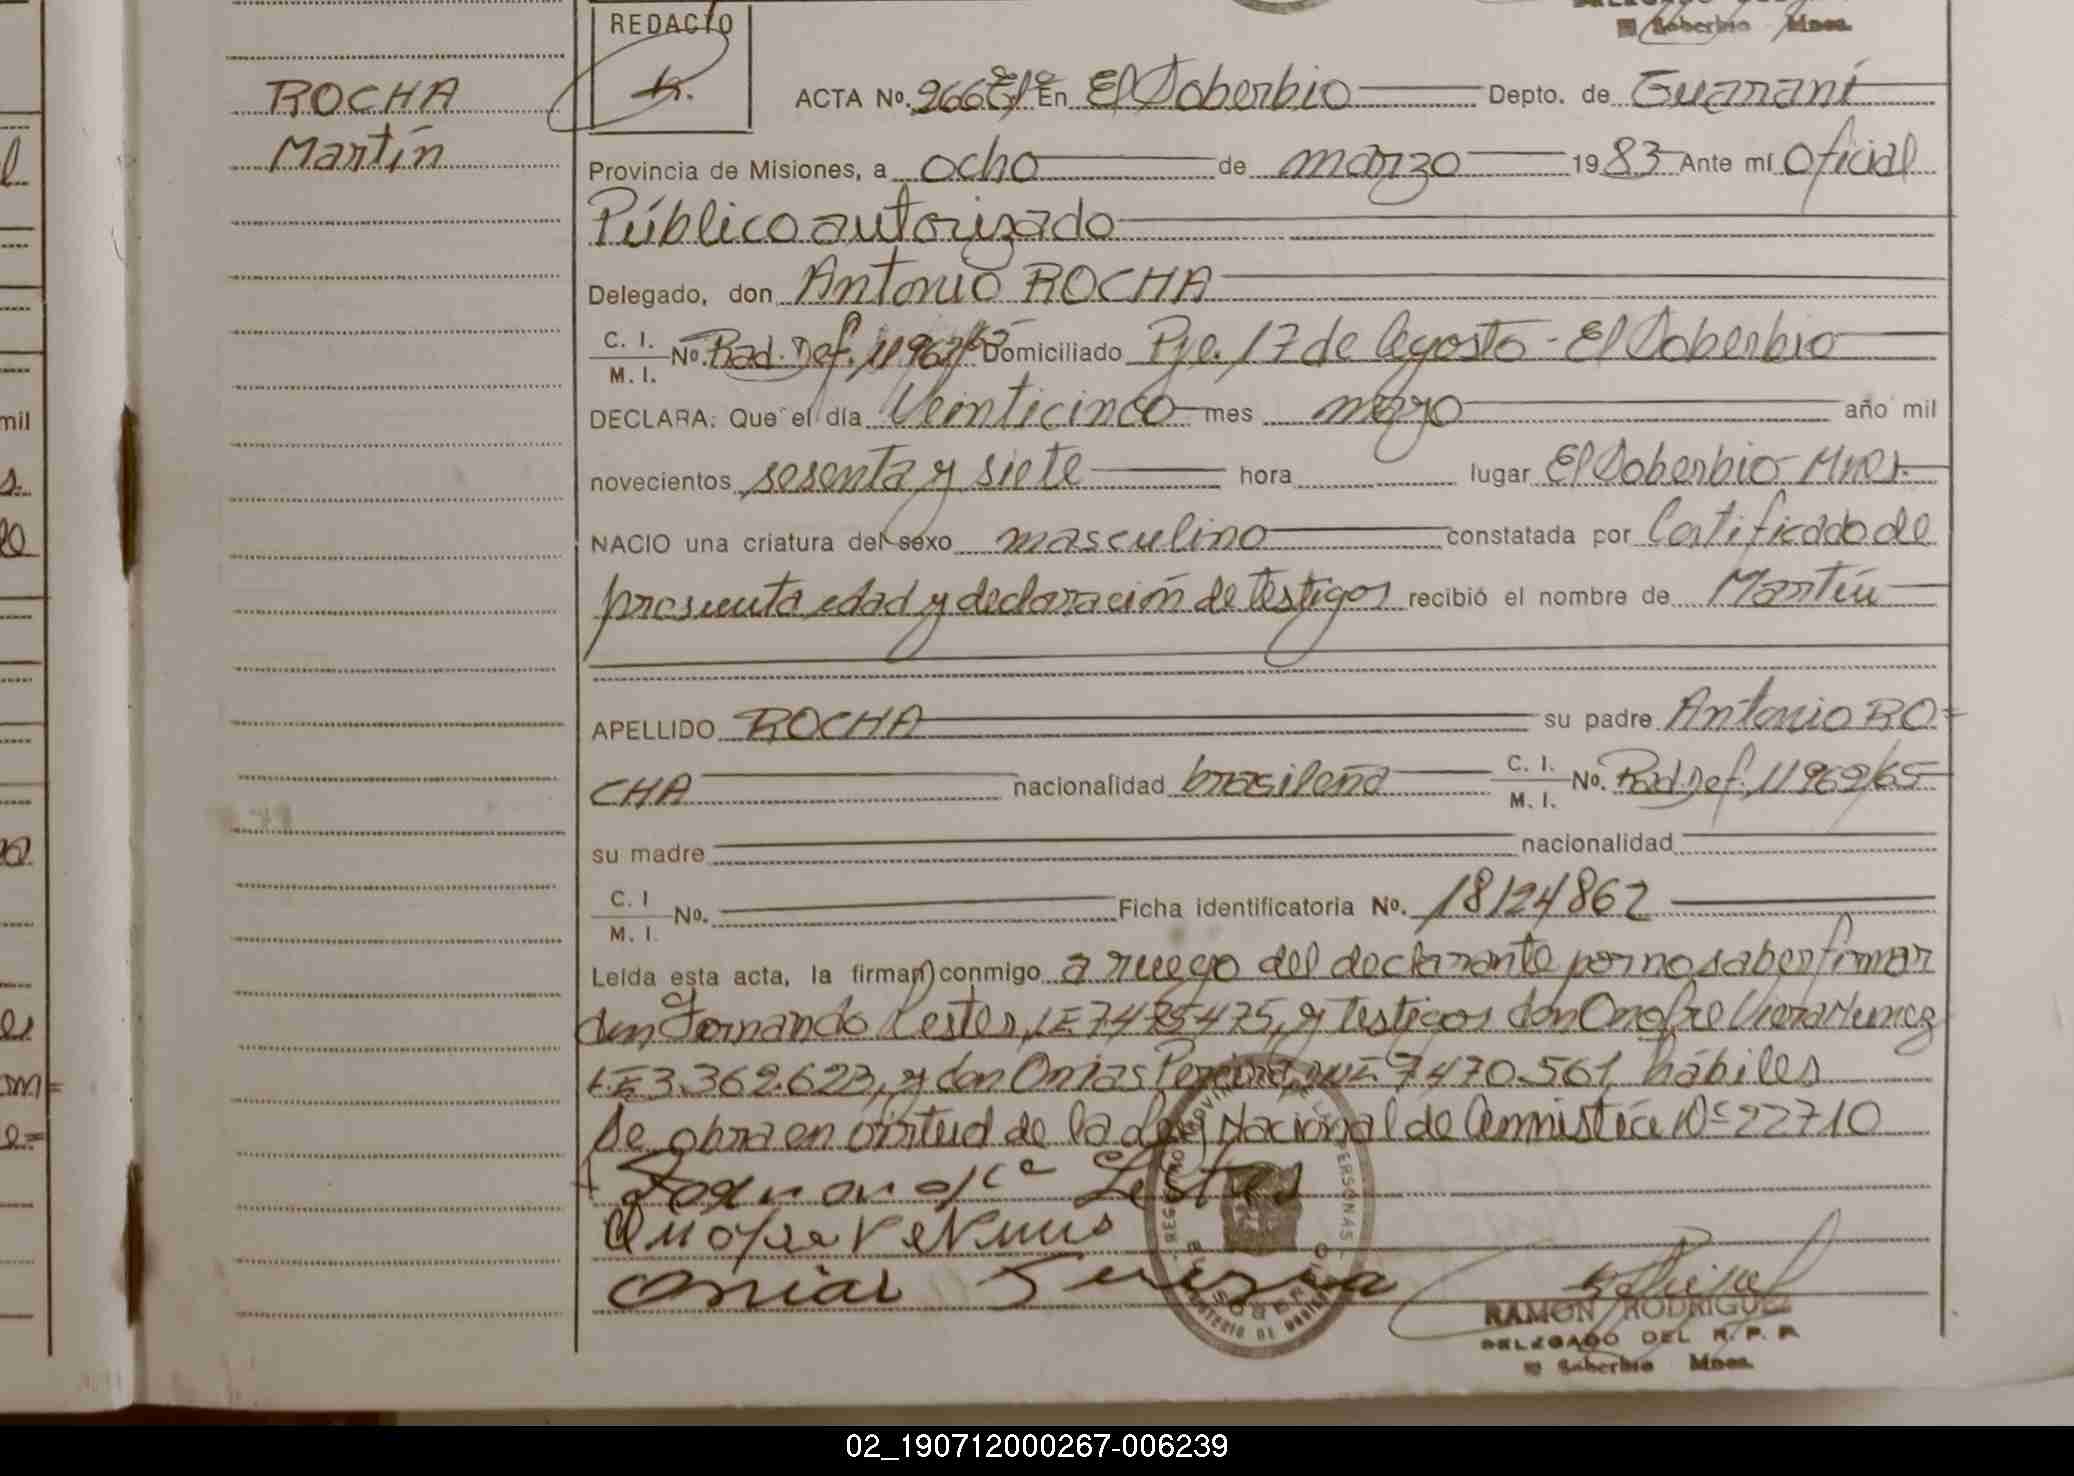 REDACTO
Soberbio Mnes.
ROCHA
Martín
ACTA Nº. 266 En El Soberbio Depto. de Guaraní
Provincia de Misiones, a ocho de marzo 1983 Ante mí Oficial
Público autorizado
Delegado, don Antonio ROCHA
C. I.
M. I. Nº. Rad. Def. 11962/65 Domiciliado Pje. 17 de Agosto - El Soberbio
DECLARA: Que el día Veinticinco mes marzo año mil
novecientos sesenta y siete hora lugar El Soberbio Mnes.
NACIO una criatura del sexo masculino constatada por Certificado de
presunta edad y declaración de testigos recibió el nombre de Martín
APELLIDO ROCHA su padre Antonio RO=
CHA nacionalidad brasileña C. I. M. I. Nº. Rad. Def. 11962/65
su madre nacionalidad
C. I M. I. Nº. Ficha identificatoria Nº. 18124862
Leída esta acta, la firman conmigo a ruego del declarante por no saber firmar
don Fernando Lester, LE 7475475, y testigos don Onofre Viera Nunez
LE 3.362.623, y don Onias Pereira, 7470.561, hábiles
Se obra en virtud de la Ley Nacional de Amnistía Nº 22710
RAMON RODRIGUEZ
DELEGADO DEL R. P. P.
El Soberbio Mnes.
02_190712000267-006239